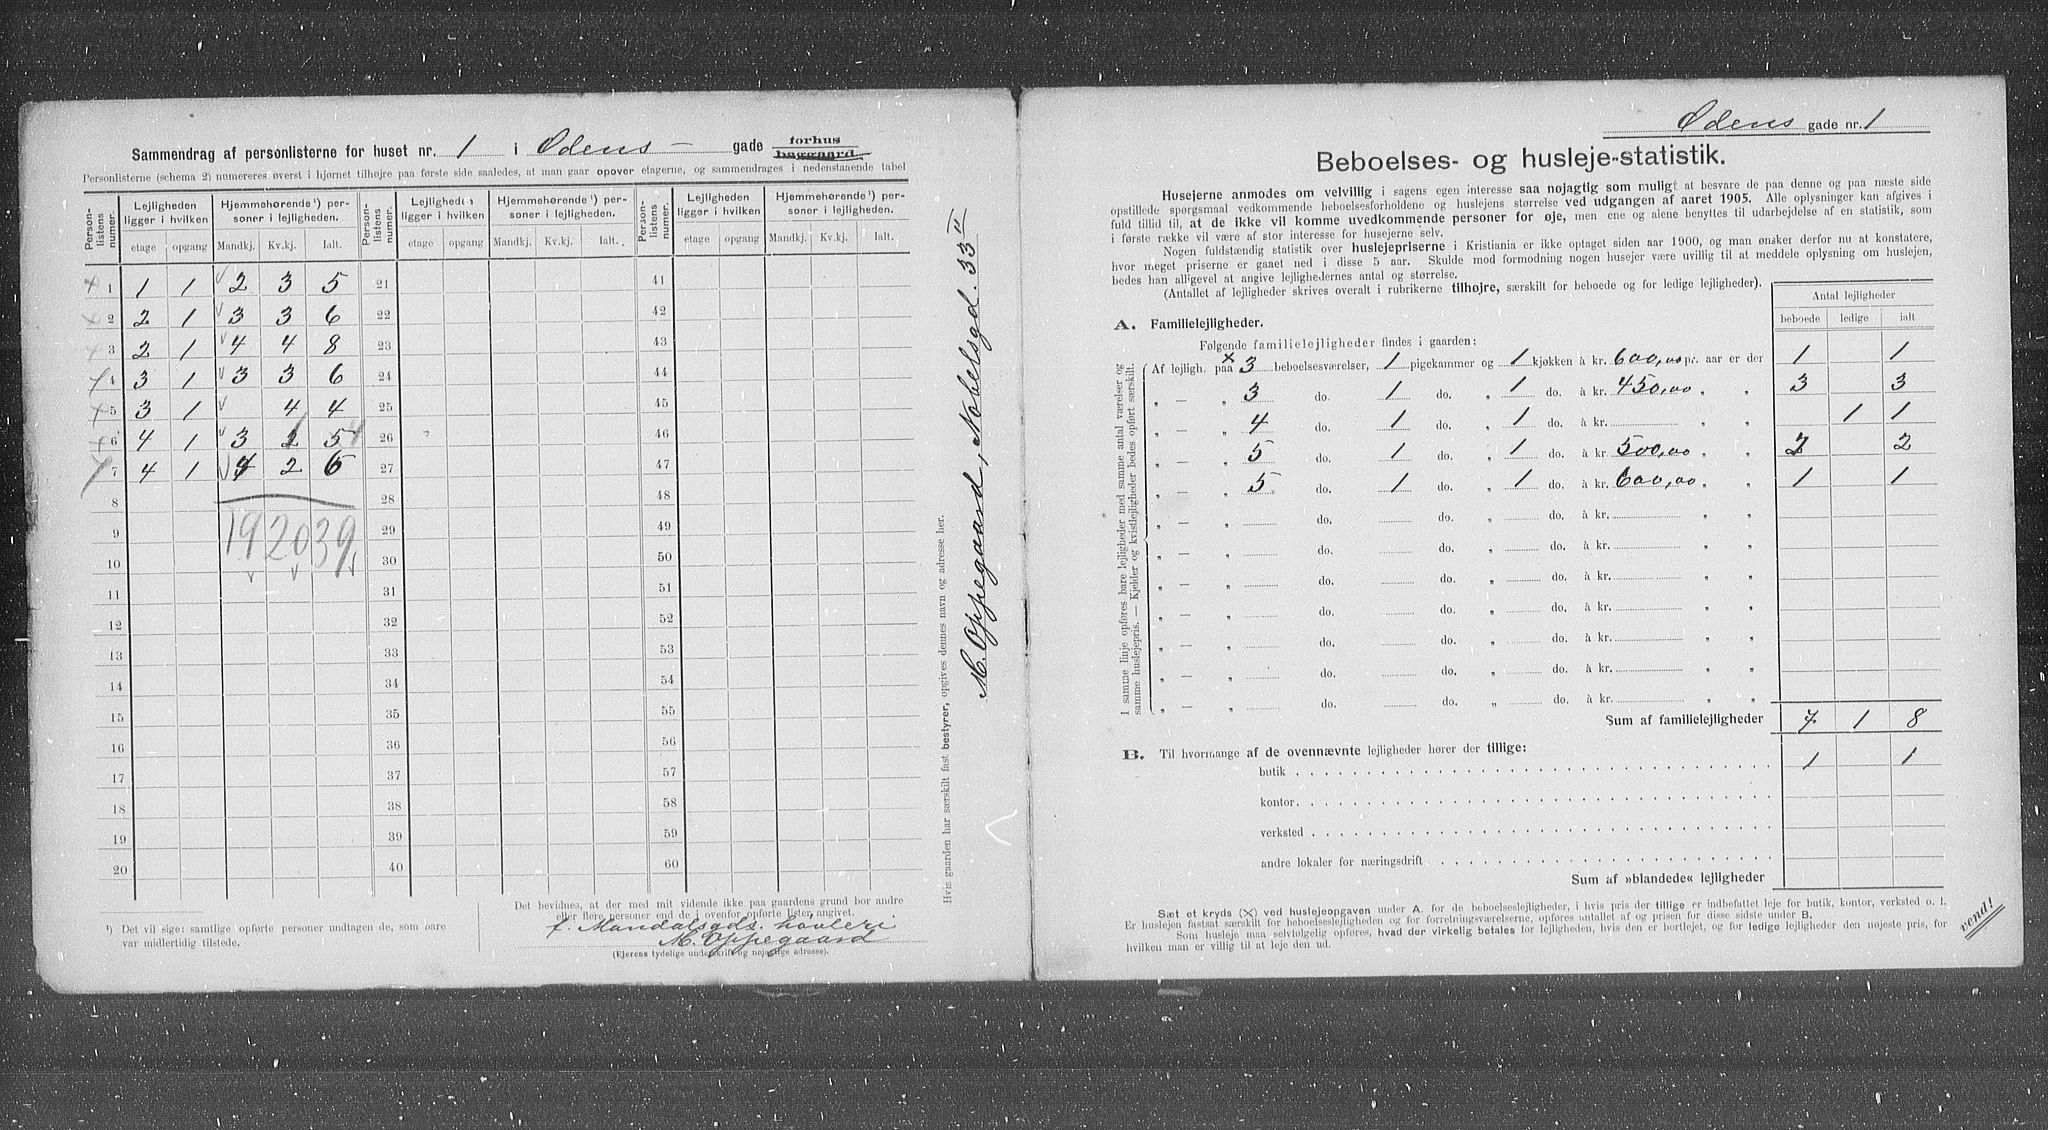 Sammendrag af personlisterne for huset nr. 1 i Odens – gade forhus baggaard
Personlisterne (schema 2) numereres øverst i hjørnet tilhøjre paa første side saaledes, at man gaar opover etagerne, og sammendrages i nedenstaaende tabel
Person-listens numer. Lejligheden ligger i hvilken Hjemmehørende ¹) personer i lejligheden. Person-listens numer. Lejligheden ligger i hvilken Hjemmehørende ¹) personer i lejligheden. Person-listens numer. Lejligheden ligger i hvilken Hjemmehørende ¹) personer i lejligheden.
etage opgang Mandkj. Kv.kj. Ialt. etage opgang Mandkj. Kv.kj. Ialt. etage opgang Mandkj. Kv.kj. Ialt.
1 1 1 2 3 5 21 41
2 2 1 3 3 6 22 42
3 2 1 4 4 8 23 43
4 3 1 3 3 6 24 44
5 3 1 4 4 25 45
6 4 1 3 2 1 5 4 26 46
7 4 1 4 2 6 27 47
8 28 48
9 19 20 39 29 49
10 30 50
11 31 51
12 32 52
13 33 53
14 34 54
15 35 55
16 36 56
17 37 57
18 38 58
19 39 59
20 40 60
¹) Det vil sige: samtlige opførte personer undtagen de, som aare
var midlertidig tilstede.
Det bevidnes, at der med mit vidende ikke paa gaardens grund bor andre
eller flere personer end de i ovenfor opførte lister angivet.
f. Mandalsgds. hovleri
M. Oppegaard
(Ejerens tydelige underskrift og nøjagtige adresse).
Hvis gaarden har særskilt fast bestyrer, opgives dennes navn og adresse her.
M. Oppegaard, Nobelsgd. 33 II
Odens gade nr. 1
Beboelses- og husleje-statistik.
Husejerne anmodes om velvillig i sagens egen interesse saa nøjagtig som muligt at besvare de paa denne og paa næste side
opstillede spørgsmaal vedkommende beboelsesforholdene og huslejens størrelse ved udgangen af aaret 1905. Alle oplysninger kan afgives i
fuld tillid til, at de ikke vil komme uvedkommende personer for øje, men ene og alene benyttes til udarbejdelse af en statistik, som
i første række vil være af stor interesse for husejerne selv.
Nogen fuldstændig statistik over huslejepriserne i Kristiania er ikke optaget siden aar 1900, og man ønsker derfor nu at konstatere,
hvor meget priserne er gaaet ned i disse 5 aar. Skulde mod formodning nogen husejer være uvillig til at meddele oplysning om huslejen,
bedes han alligevel at angive lejlighedernes antal og størrelse.
(Antallet af lejligheder skrives overalt i rubrikerne tilhøjre, særskilt for beboede og for ledige lejligheder).
Antal lejligheder
beboede ledige ialt
A. Familielejligheder.
Følgende familielejligheder findes i gaarden:
I samme linje opføres bare lejligheder med samme antal værelser og
samme huslejepris. — Kjelder og kvistlejligheder bedes opført særskilt.
Af lejligh. paa × 3 beboelsesværelser, 1 pigekammer og 1 kjøkken à kr. 600,00 pr. aar er der 1 1
„ — „ 3 do. 1 do. „ 1 do. à kr. 450,00 „ „ 3 3
„ — „ 4 do. 1 do. „ 1 do. à kr. 1 1
„ — „ 5 do. 1 do. „ 1 do. à kr. 500,00 „ „ 2 2
„ — „ 5 do. 1 do. „ 1 do. à kr. 600,00 „ „ 1 1
„ — „ do. do. „ do. à kr. „ „
„ — „ do. do. „ do. à kr. „ „
„ — „ do. do. „ do. à kr. „ „
„ — „ do. do. „ do. à kr. „ „
„ — „ do. do. „ do. à kr. „ „
„ — „ do. do. „ do. à kr. „ „
„ — „ do. do. „ do. à kr. „ „
Sum af familielejligheder 7 1 8
B. Til hvormange af de ovennævnte lejligheder hører der tillige:
butik 1 1
kontor
verksted
andre lokaler for næringsdrift
Sum af »blandede« lejligheder
Sæt et kryds (×) ved huslejeopgaven under A. for de beboelseslejligheder, i hvis pris der tillige er indbefattet leje for butik, kontor, verksted o. l.
Er huslejen fastsat særskilt for beboelseslejligheden og for forretningsværelserne, opføres antallet af og prisen for disse sidste under B.
Som husleje maa selvfølgelig opføres, hvad der virkelig betales for lejligheden, hvis den er bortlejet, og for ledige lejligheder den nøjeste pris, for
hvilken man er villig til at leje den ud.
vend!